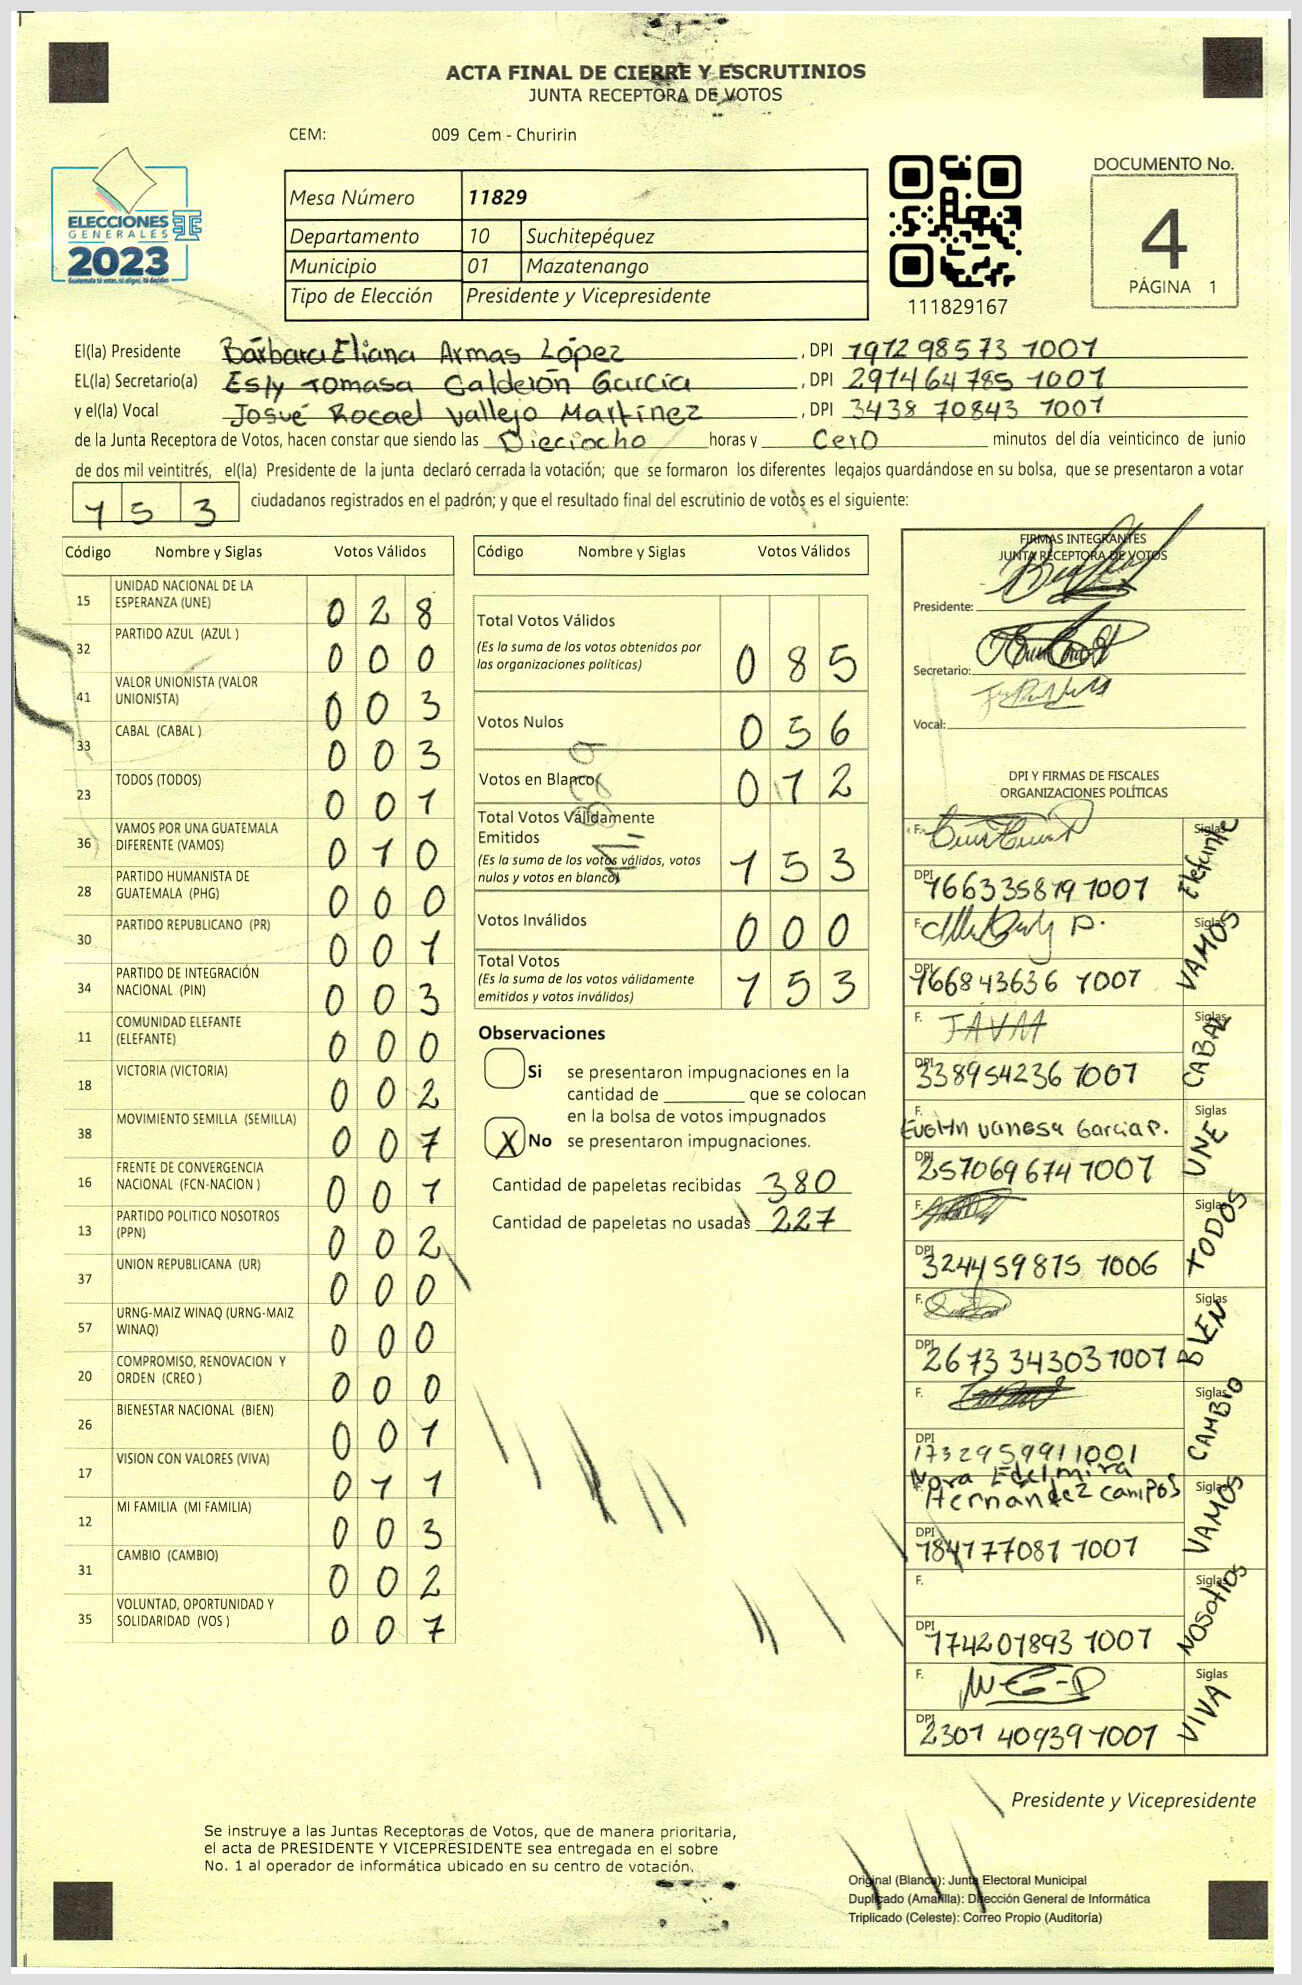 ACTA FINAL DE CIERRE Y ESCRUTINIOS
JUNTA RECEPTORA DE VOTOS
CEM: 009 Cem - Churirin
ELECCIONES
GENERALES
2023
Mesa Número 11829
Departamento 10 Suchitepéquez
Municipio 01 Mazatenango
Tipo de Elección Presidente y Vicepresidente
111829167
DOCUMENTO No.
4
PÁGINA 1
El(la) Presidente Bárbara Eliana Armas López , DPI 1972 98573 1001
EL(la) Secretario(a) Esly Tomasa Calderón García , DPI 2914 64785 1001
y el(la) Vocal Josué Rocael Vallejo Martínez , DPI 3438 70843 1001
de la Junta Receptora de Votos, hacen constar que siendo las Dieciocho horas y Cero minutos del día veinticinco de junio
de dos mil veintitrés, el(la) Presidente de la junta declaró cerrada la votación; que se formaron los diferentes legajos quardándose en su bolsa, que se presentaron a votar
153 ciudadanos registrados en el padrón; y que el resultado final del escrutinio de votos es el siguiente:
Código Nombre y Siglas Votos Válidos
15 UNIDAD NACIONAL DE LA ESPERANZA (UNE) 028
32 PARTIDO AZUL (AZUL ) 000
41 VALOR UNIONISTA (VALOR UNIONISTA) 003
33 CABAL (CABAL ) 003
23 TODOS (TODOS) 001
36 VAMOS POR UNA GUATEMALA DIFERENTE (VAMOS) 010
28 PARTIDO HUMANISTA DE GUATEMALA (PHG) 000
30 PARTIDO REPUBLICANO (PR) 001
34 PARTIDO DE INTEGRACIÓN NACIONAL (PIN) 003
11 COMUNIDAD ELEFANTE (ELEFANTE) 000
18 VICTORIA (VICTORIA) 002
38 MOVIMIENTO SEMILLA (SEMILLA) 007
16 FRENTE DE CONVERGENCIA NACIONAL (FCN-NACION ) 001
13 PARTIDO POLITICO NOSOTROS (PPN) 002
37 UNION REPUBLICANA (UR) 000
57 URNG-MAIZ WINAQ (URNG-MAIZ WINAQ) 000
20 COMPROMISO, RENOVACION Y ORDEN (CREO ) 000
26 BIENESTAR NACIONAL (BIEN) 001
17 VISION CON VALORES (VIVA) 011
12 MI FAMILIA (MI FAMILIA) 003
31 CAMBIO (CAMBIO) 002
35 VOLUNTAD, OPORTUNIDAD Y SOLIDARIDAD (VOS ) 007
Código Nombre y Siglas Votos Válidos
Total Votos Válidos
(Es la suma de los votos obtenidos por
las organizaciones políticas) 085
Votos Nulos 056
Votos en Blanco 012
Total Votos Válidamente
Emitidos
(Es la suma de los votos válidos, votos
nulos y votos en blanco) 153
Votos Inválidos 000
Total Votos
(Es la suma de los votos válidamente
emitidos y votos inválidos) 153
11829
Observaciones
Si se presentaron impugnaciones en la
cantidad de ________ que se colocan
en la bolsa de votos impugnados
X No se presentaron impugnaciones.
Cantidad de papeletas recibidas 380
Cantidad de papeletas no usadas 227
FIRMAS INTEGRANTES
JUNTA RECEPTORA DE VOTOS
Presidente:
Secretario:
Vocal:
DPI Y FIRMAS DE FISCALES
ORGANIZACIONES POLÍTICAS
F. Siglas Elefante
DPI 166335819 1001
F. Siglas VAMOS
DPI 166843636 1001
F. JAVM Siglas CABAL
DPI 338954236 1001
F. Evelin Vanesa Garcia P. Siglas UNE
DPI 257069674 1001
F. Siglas TODOS
DPI 324459875 1006
F. Siglas BIEN
DPI 2673 34303 1001
F. Siglas CAMBIO
DPI 1732959911001
F. Nora Edelmira
Hernandez campos Siglas VAMOS
DPI 184177081 1001
F. Siglas NOSOTROS
DPI 174201893 1001
F. Siglas VIVA
DPI 2301 40939 1001
Presidente y Vicepresidente
Se instruye a las Juntas Receptoras de Votos, que de manera prioritaria,
el acta de PRESIDENTE Y VICEPRESIDENTE sea entregada en el sobre
No. 1 al operador de informática ubicado en su centro de votación.
Original (Blanca): Junta Electoral Municipal
Duplicado (Amarilla): Dirección General de Informática
Triplicado (Celeste): Correo Propio (Auditoría)